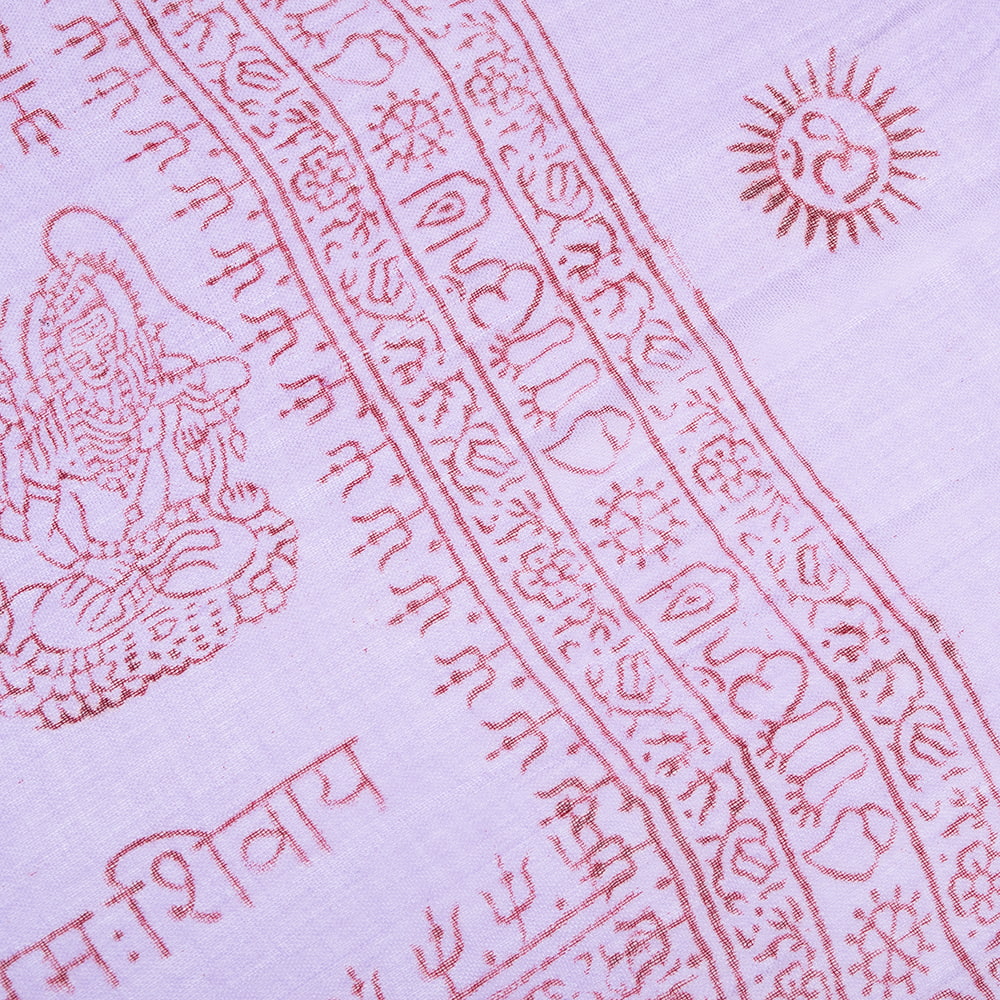 ॐ
मः शिवाय